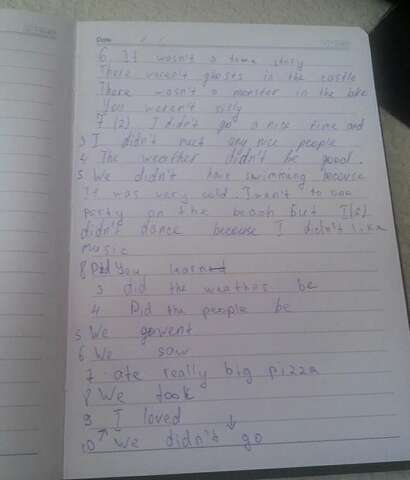 Date / /
6. It wasn't a true story
There weren't ghosts in the castle
There wasn't a monster in the lake
You weren't silly
7 (2) I didn't go a nice time and
3 I didn't meet any nice people
4 The weather didn't be good.
5 We didn't have swimming because
It was very cold. I went to one
party on the beach but I (2)
didn't dance because I didn't like
music
8 Did You learned
3 did the weather be
4 Did the people be
5 We go went
6 We saw
7 ate really big pizza
8 We took
9 I loved
10 We didn't go